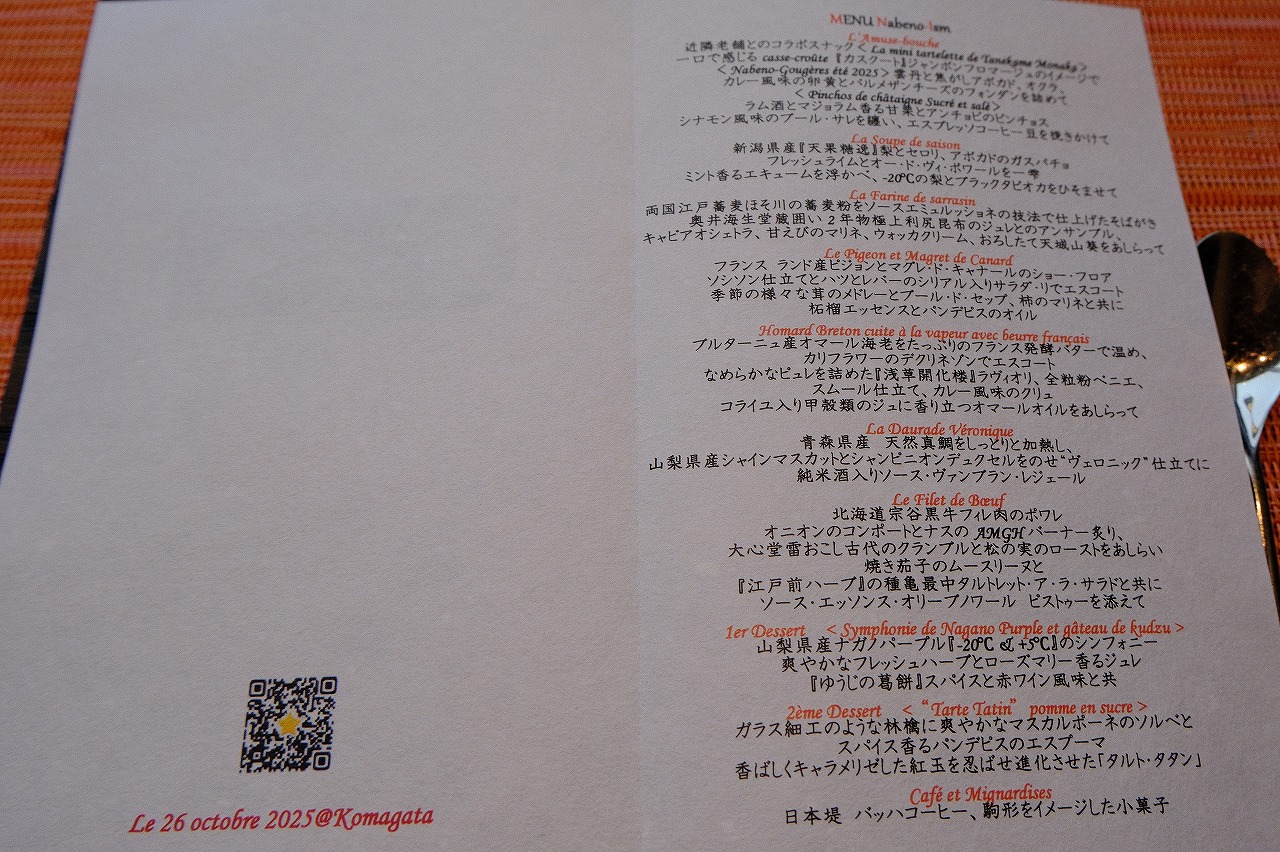 MENU Nabeno-Ism
L'Amuse-bouche
近隣老舗とのコラボスナック < La mini tartelette de Tanekame Monaka >
一口で感じる casse-croûte『カスクート』ジャンボンフロマージュのイメージで
< Nabeno-Gougères été 2025 > 雲丹と焦がしアボカド、オクラ、
カレー風味の卵黄とパルメザンチーズのフォンダンを詰めて
< Pinchos de châtaigne Sucré et salé >
ラム酒とマジョラム香る甘栗とアンチョビのピンチョス
シナモン風味のブール・サレを纏い、エスプレッソコーヒー豆を挽きかけて
La Soupe de saison
新潟県産『天果糖逸』梨とセロリ、アボカドのガスパチョ
フレッシュライムとオー・ド・ヴィ・ポワールを一雫
ミント香るエキュームを浮かべ、-20℃の梨とブラックタピオカをひそませて
La Farine de sarrasin
両国江戸蕎麦ほそ川の蕎麦粉をソースエミュルッショネの技法で仕上げたそばがき
奥井海生堂蔵囲い2年物極上利尻昆布のジュレとのアンサンブル、
キャビアオシェトラ、甘えびのマリネ、ウォッカクリーム、おろしたて天城山葵をあしらって
Le Pigeon et Magret de Canard
フランス ランド産ピジョンとマグレ・ド・キャナールのショー・フロア
ソシソン仕立てとハツとレバーのシリアル入りサラダ・リでエスコート
季節の様々な茸のメドレーとプール・ド・セップ、柿のマリネと共に
柘榴エッセンスとパンデピスのオイル
Homard Breton cuite à la vapeur avec beurre français
ブルターニュ産オマール海老をたっぷりのフランス発酵バターで温め、
カリフラワーのデクリネゾンでエスコート
なめらかなピュレを詰めた『浅草開化楼』ラヴィオリ、全粒粉ベニエ、
スムール仕立て、カレー風味のクリュ
コライユ入り甲殻類のジュに香り立つオマールオイルをあしらって
La Daurade Véronique
青森県産 天然真鯛をしっとりと加熱し、
山梨県産シャインマスカットとシャンピニオンデュクセルをのせ"ヴェロニック"仕立てに
純米酒入りソース・ヴァンブラン・レジェール
Le Filet de Bœuf
北海道宗谷黒牛フィレ肉のポワレ
オニオンのコンポートとナスの AMGH バーナー炙り、
大心堂雷おこし古代のクランブルと松の実のローストをあしらい
焼き茄子のムースリーヌと
『江戸前ハーブ』の種亀最中タルトレット・ア・ラ・サラドと共に
ソース・エッソンス・オリーブノワール ピストゥーを添えて
1er Dessert < Symphonie de Nagano Purple et gâteau de kudzu >
山梨県産ナガノパープル『-20℃ & +5℃』のシンフォニー
爽やかなフレッシュハーブとローズマリー香るジュレ
『ゆうじの葛餅』スパイスと赤ワイン風味と共
2ème Dessert < "Tarte Tatin" pomme en sucre >
ガラス細工のような林檎に爽やかなマスカルポーネのソルベと
スパイス香るパンデピスのエスプーマ
香ばしくキャラメリゼした紅玉を忍ばせ進化させた「タルト・タタン」
Café et Mignardises
日本堤 バッハコーヒー、駒形をイメージした小菓子
Le 26 octobre 2025@Komagata